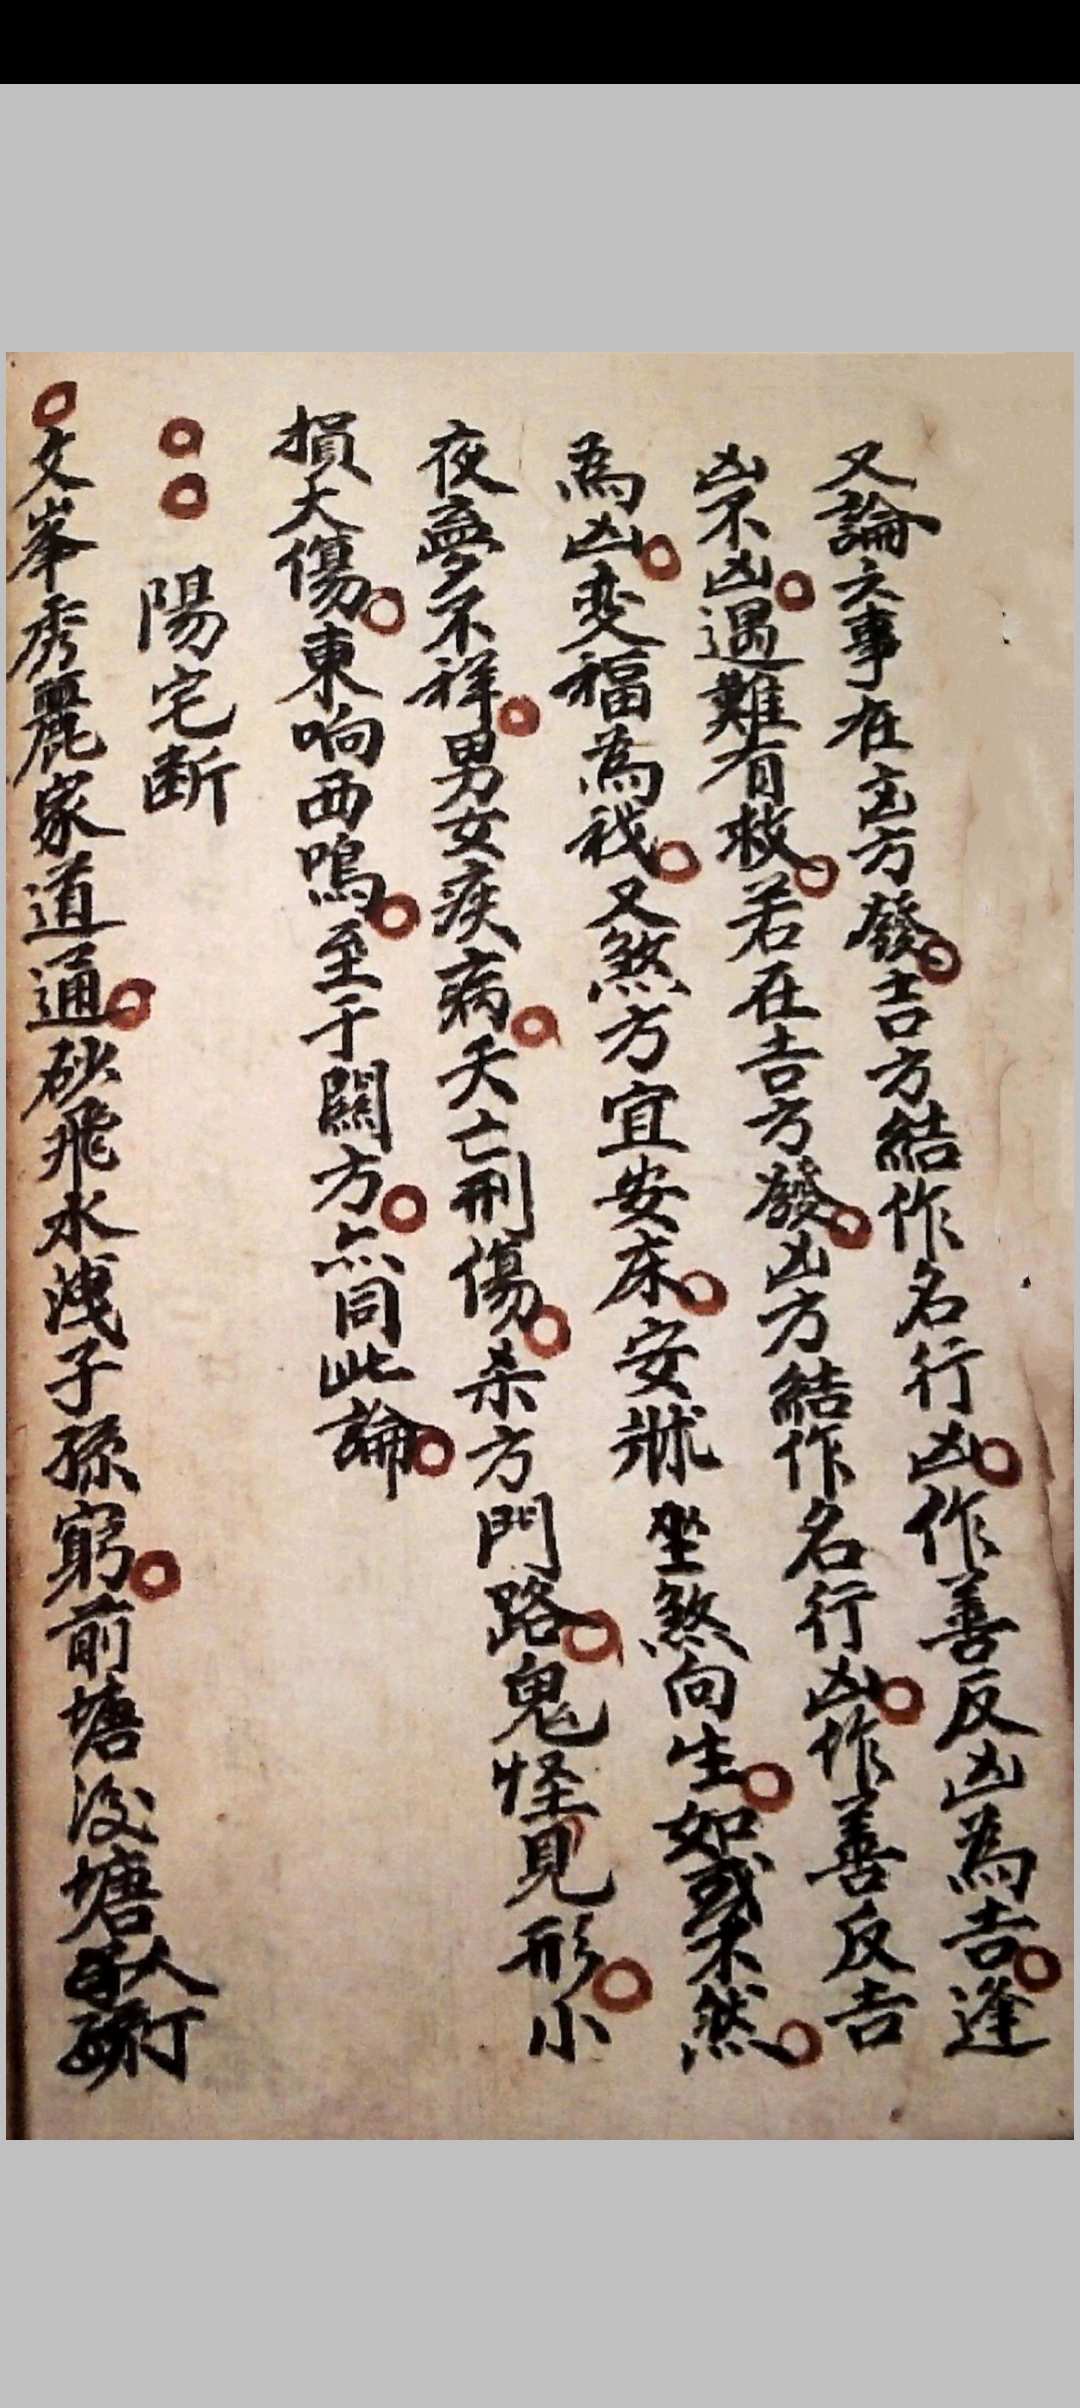 又論六事在凶方發吉方結作名行凶作善反凶為吉逢
凶不凶遇難有救若在吉方發凶方結作名行凶作善反吉
為凶变福為祸又煞方宜安床安牀坐煞向生如或不然
夜夢不祥男女疾病夭亡刑傷杀方門路鬼怪見形小
損大傷東响西鳴至于關方亦同此論
陽宅断
文峯秀麗家道通砂飛水洩子孫窮前塘後塘人丁